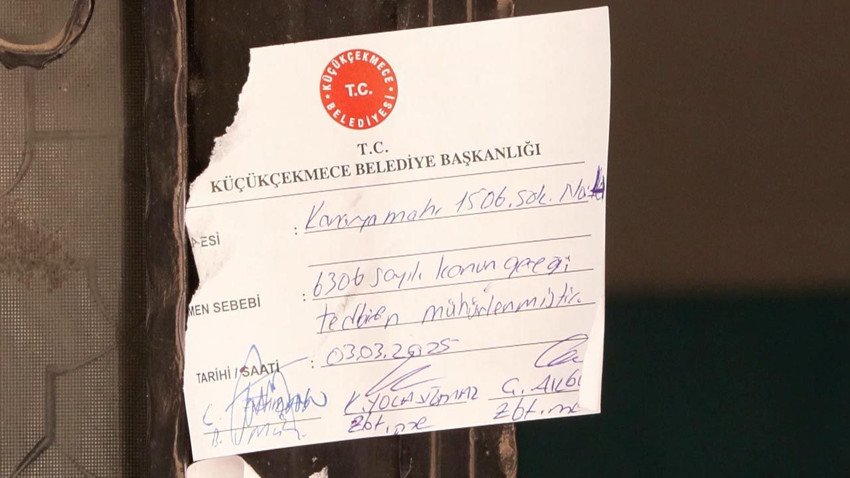 KÜÇÜKÇEKMECE
T.C.
BELEDİYESİ
T.C.
KÜÇÜKÇEKMECE BELEDİYE BAŞKANLIĞI
ESİ : Kanarya mah. 1506. sok. No:
MEN SEBEBİ : 6306 sayılı kanun gereği
tedbiren mühürlenmiştir.
TARİHİ / SAATİ : 03.03.2025
zbt. zbt.